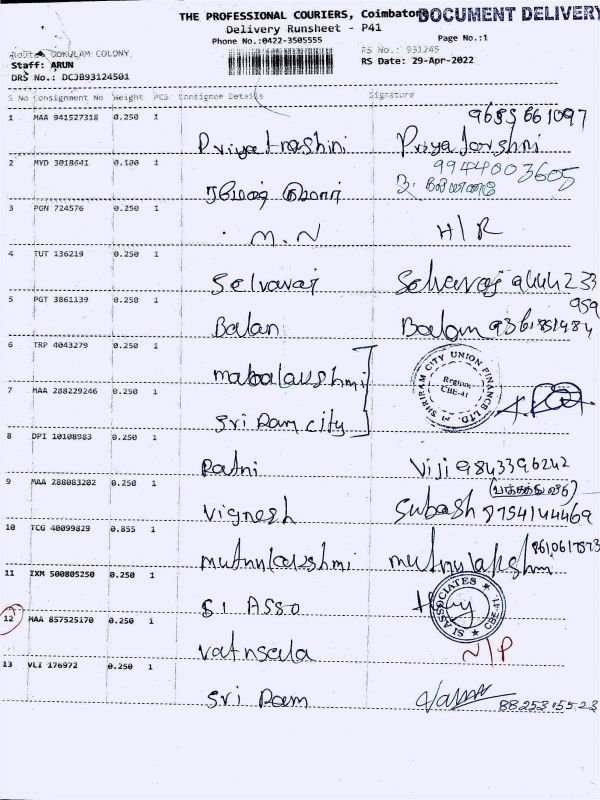 THE PROFESSIONAL COURIERS, Coimbatore
DOCUMENT DELIVERY
Delivery Runsheet - P41
Phone No.:0422-3505555
Page No.:1
Route: GOKULAM COLONY
RS No.: 931245
Staff: ARUN
RS Date: 29-Apr-2022
DRS No.: DCJB93124501
S No Consignment No Weight PCS Consignee Details Signature
1 MAA 941527318 0.250 1 9655661097
Priyatrashini Priyadarshni
2 MYD 3018641 0.100 1 9944003605
ரமேஷ் குமார்
3 PON 724576 0.250 1
M.N H/R
4 TUT 136219 0.250 1
Selvaraj Selvaraj 9444233
959
5 PGT 3861139 0.250 1
Balan Balan 9361851484
6 TRP 4043279 0.250 1
mahalakshmi
SHRIRAM CITY UNION FINANCE LTD.
Region
CBE-41
7 MAA 288229246 0.250 1
Sri Ram city
8 DPI 10108983 0.250 1
Patni Viji 9843396242
9 MAA 288083202 0.250 1 (பக்கத்து வீடு)
Vignesh Subash 8754144469
10 TCG 40099829 0.855 1 8610617573
muthulakshmi muthulakshmi
11 IXM 500805250 0.250 1
SI ASSO
SI ASSOCIATES CBE-41
12 MAA 857525170 0.250 1
Vatnsala N/P
13 VLI 176972 0.250 1
Sri Ram 8825315523